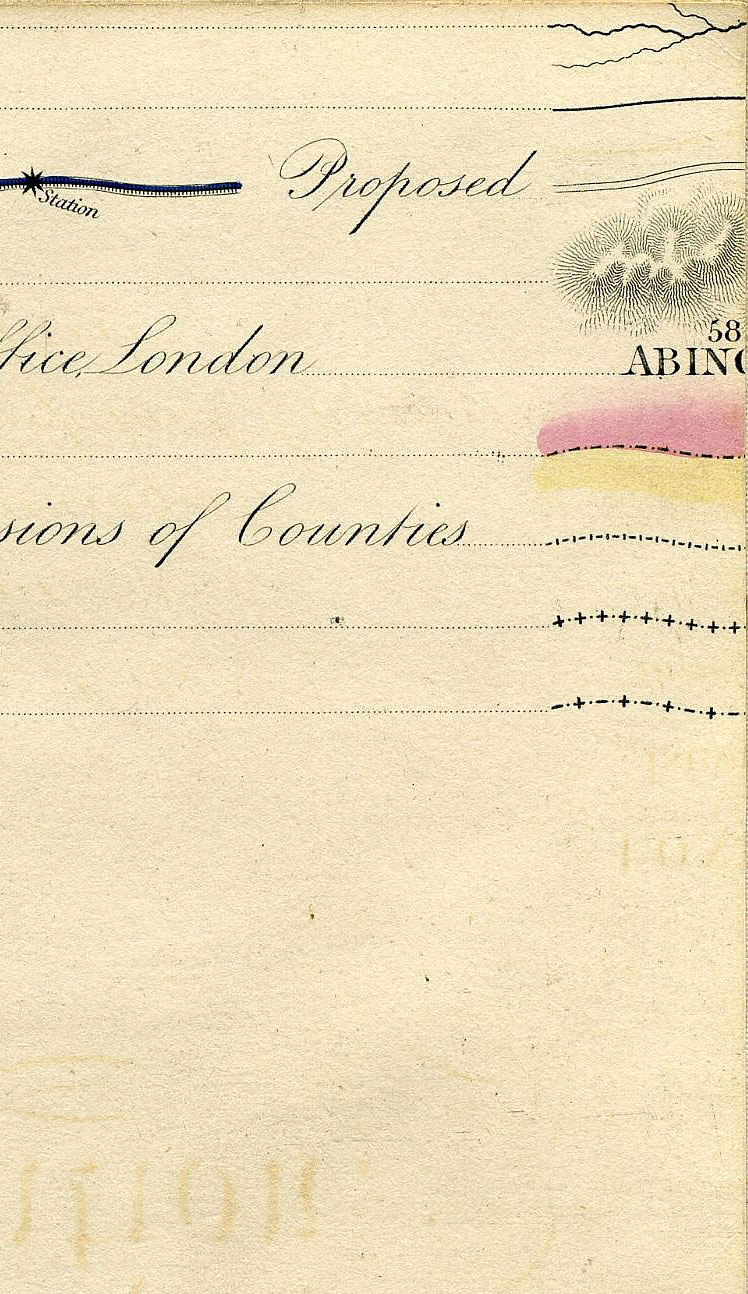 Proposed
Station
58
ffice, London
ABING
sions of Counties